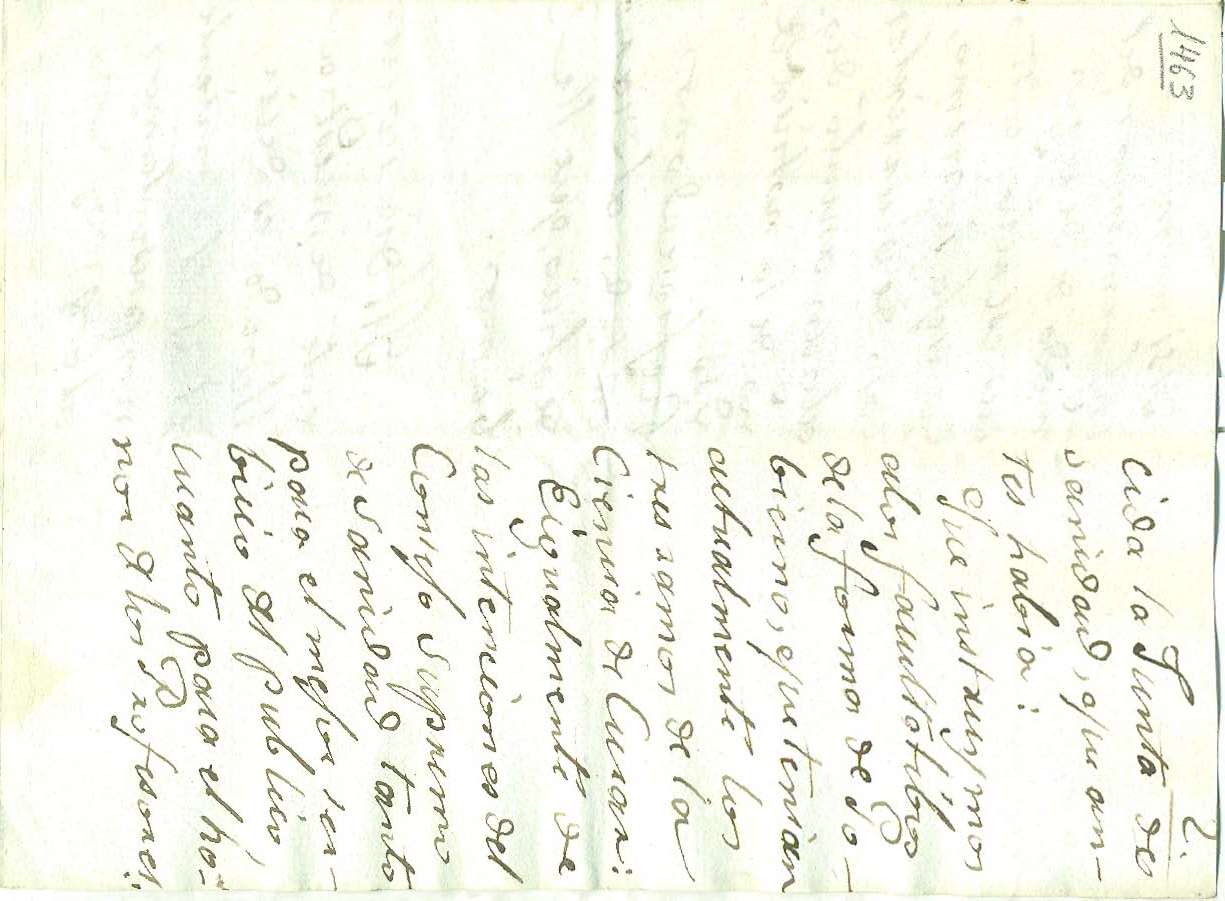 1463
2.
cida la Junta de
Sanidad, que an-
tes habia:
Que instruysmos
alos facultatibos
dela forma de Go-
bierno, que tenian
actualmente los
tres ramos de la
Ciencia de Curar:
E igualmente de
las intenciones del
Consejo Supremo
de Sanidad tanto
para el mejor ser-
bicio del publico
quanto para el ho-
nor d los Profesores: